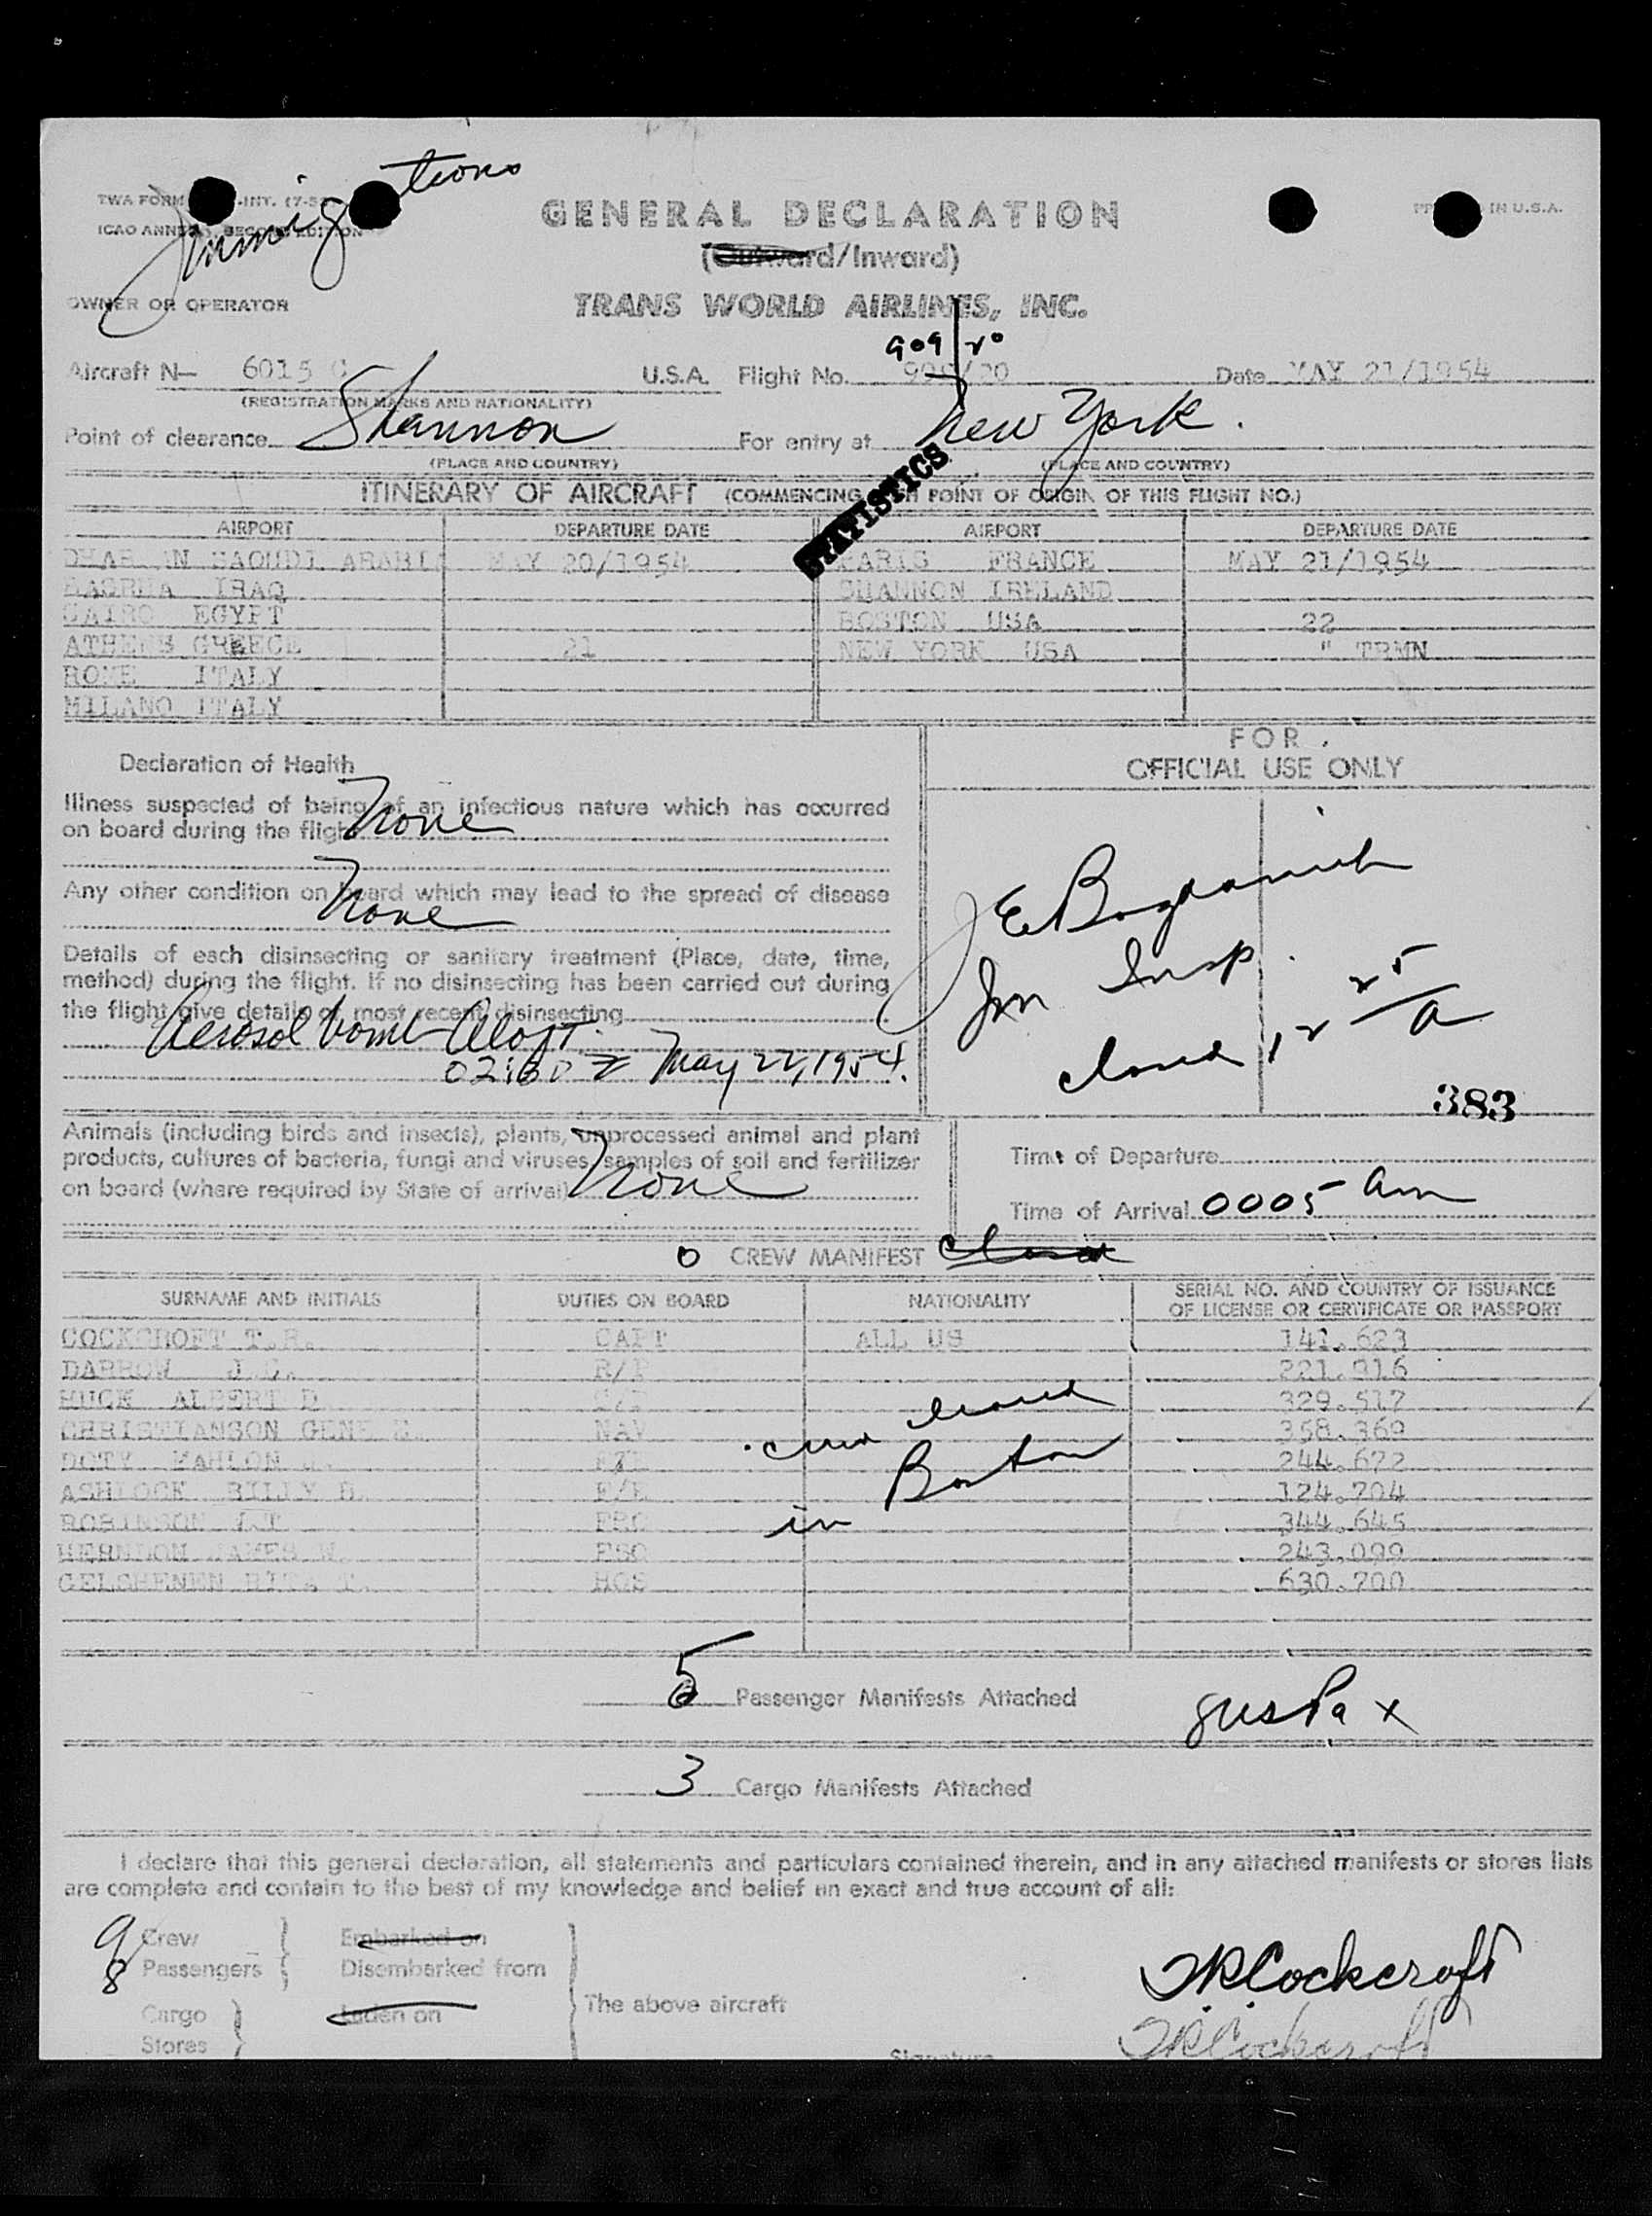 Immigrations
TWA FORM -INT. (7-5
ICAO ANNEX SECOND EDITION
GENERAL DECLARATION
PRINTED IN U.S.A.
(Outward/Inward)
OWNER OR OPERATOR
TRANS WORLD AIRLINES, INC.
909/20
Aircraft N— 6015 C U.S.A. Flight No. Date MAY 21/1954
(REGISTRATION MARKS AND NATIONALITY)
Point of clearance Shannon For entry at New York.
(PLACE AND COUNTRY) (PLACE AND COUNTRY)
STATISTICS
ITINERARY OF AIRCRAFT (COMMENCING WITH POINT OF ORIGIN OF THIS FLIGHT NO.)
AIRPORT DEPARTURE DATE AIRPORT DEPARTURE DATE
SAOUDI ARABI MAY 20/1954 PARIS FRANCE MAY 21/1954
BASRHA IRAQ SHANNON IRELAND
CAIRO EGYPT BOSTON USA 22
ATHENS GREECE 21 NEW YORK USA " TRMN
ROME ITALY
MILANO ITALY
Declaration of Health
Illness suspected of being of an infectious nature which has occurred
on board during the flight None
Any other condition on board which may lead to the spread of disease
None
Details of each disinsecting or sanitary treatment (Place, date, time,
method) during the flight. If no disinsecting has been carried out during
the flight give details of most recent disinsecting
Aerosol bomb Aloft
Z May 22, 1954.
FOR
OFFICIAL USE ONLY
E Bogdanich
Im Insp
closed 12 25/A
383
Animals (including birds and insects), plants, unprocessed animal and plant
products, cultures of bacteria, fungi and viruses, samples of soil and fertilizer
on board (where required by State of arrival) None
Time of Departure
Time of Arrival 0005 am
0 CREW MANIFEST closed
SURNAME AND INITIALS DUTIES ON BOARD NATIONALITY SERIAL NO. AND COUNTRY OF ISSUANCE
OF LICENSE OR CERTIFICATE OR PASSPORT
COCKCROFT T.R. CAPT ALL US 141.623
DARROW J.C. 221.916
HUCK ALBERT D 329.517
CHRISTIANSON GENE NAV 358.369
DOTY MAHLON 244.672
ASHLOCK BILLY B. F/E 124.704
ROBINSON J.T 344.645
HERNDON JAMES W. 243.099
GELSHENEN RITA T. HOS 630.700
crew cleared
in Boston
5 Passenger Manifests Attached
gus Pax
3 Cargo Manifests Attached
I declare that this general declaration, all statements and particulars contained therein, and in any attached manifests or stores lists
are complete and contain to the best of my knowledge and belief an exact and true account of all:
9 Crew Embarked on
8 Passengers Disembarked from
The above aircraft
Cargo Laden on
Stores
TRCockcroft
Signature TRCockcroft